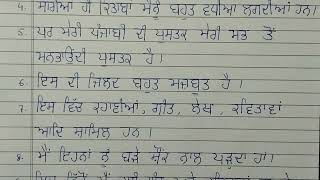 4. ਸਾਰੀਆਂ ਹੀ ਕਿਤਾਬਾਂ ਮੈਨੂੰ ਬਹੁਤ ਵਧੀਆ ਲਗਦੀਆਂ ਹਨ।
5. ਪਰ ਮੇਰੀ ਪੰਜਾਬੀ ਦੀ ਪੁਸਤਕ ਮੇਰੀ ਸਭ ਤੋਂ
ਮਨਭਾਉਂਦੀ ਪੁਸਤਕ ਹੈ।
6. ਇਸ ਦੀ ਜਿਲਦ ਬਹੁਤ ਮਜ਼ਬੂਤ ਹੈ।
7. ਇਸ ਵਿੱਚ ਕਹਾਣੀਆਂ, ਗੀਤ, ਲੇਖ, ਕਵਿਤਾਵਾਂ
ਆਦਿ ਸ਼ਾਮਿਲ ਹਨ।
8. ਮੈਂ ਇਹਨਾਂ ਨੂੰ ਬੜੇ ਸ਼ੌਂਕ ਨਾਲ ਪੜ੍ਹਦਾ ਹਾਂ।